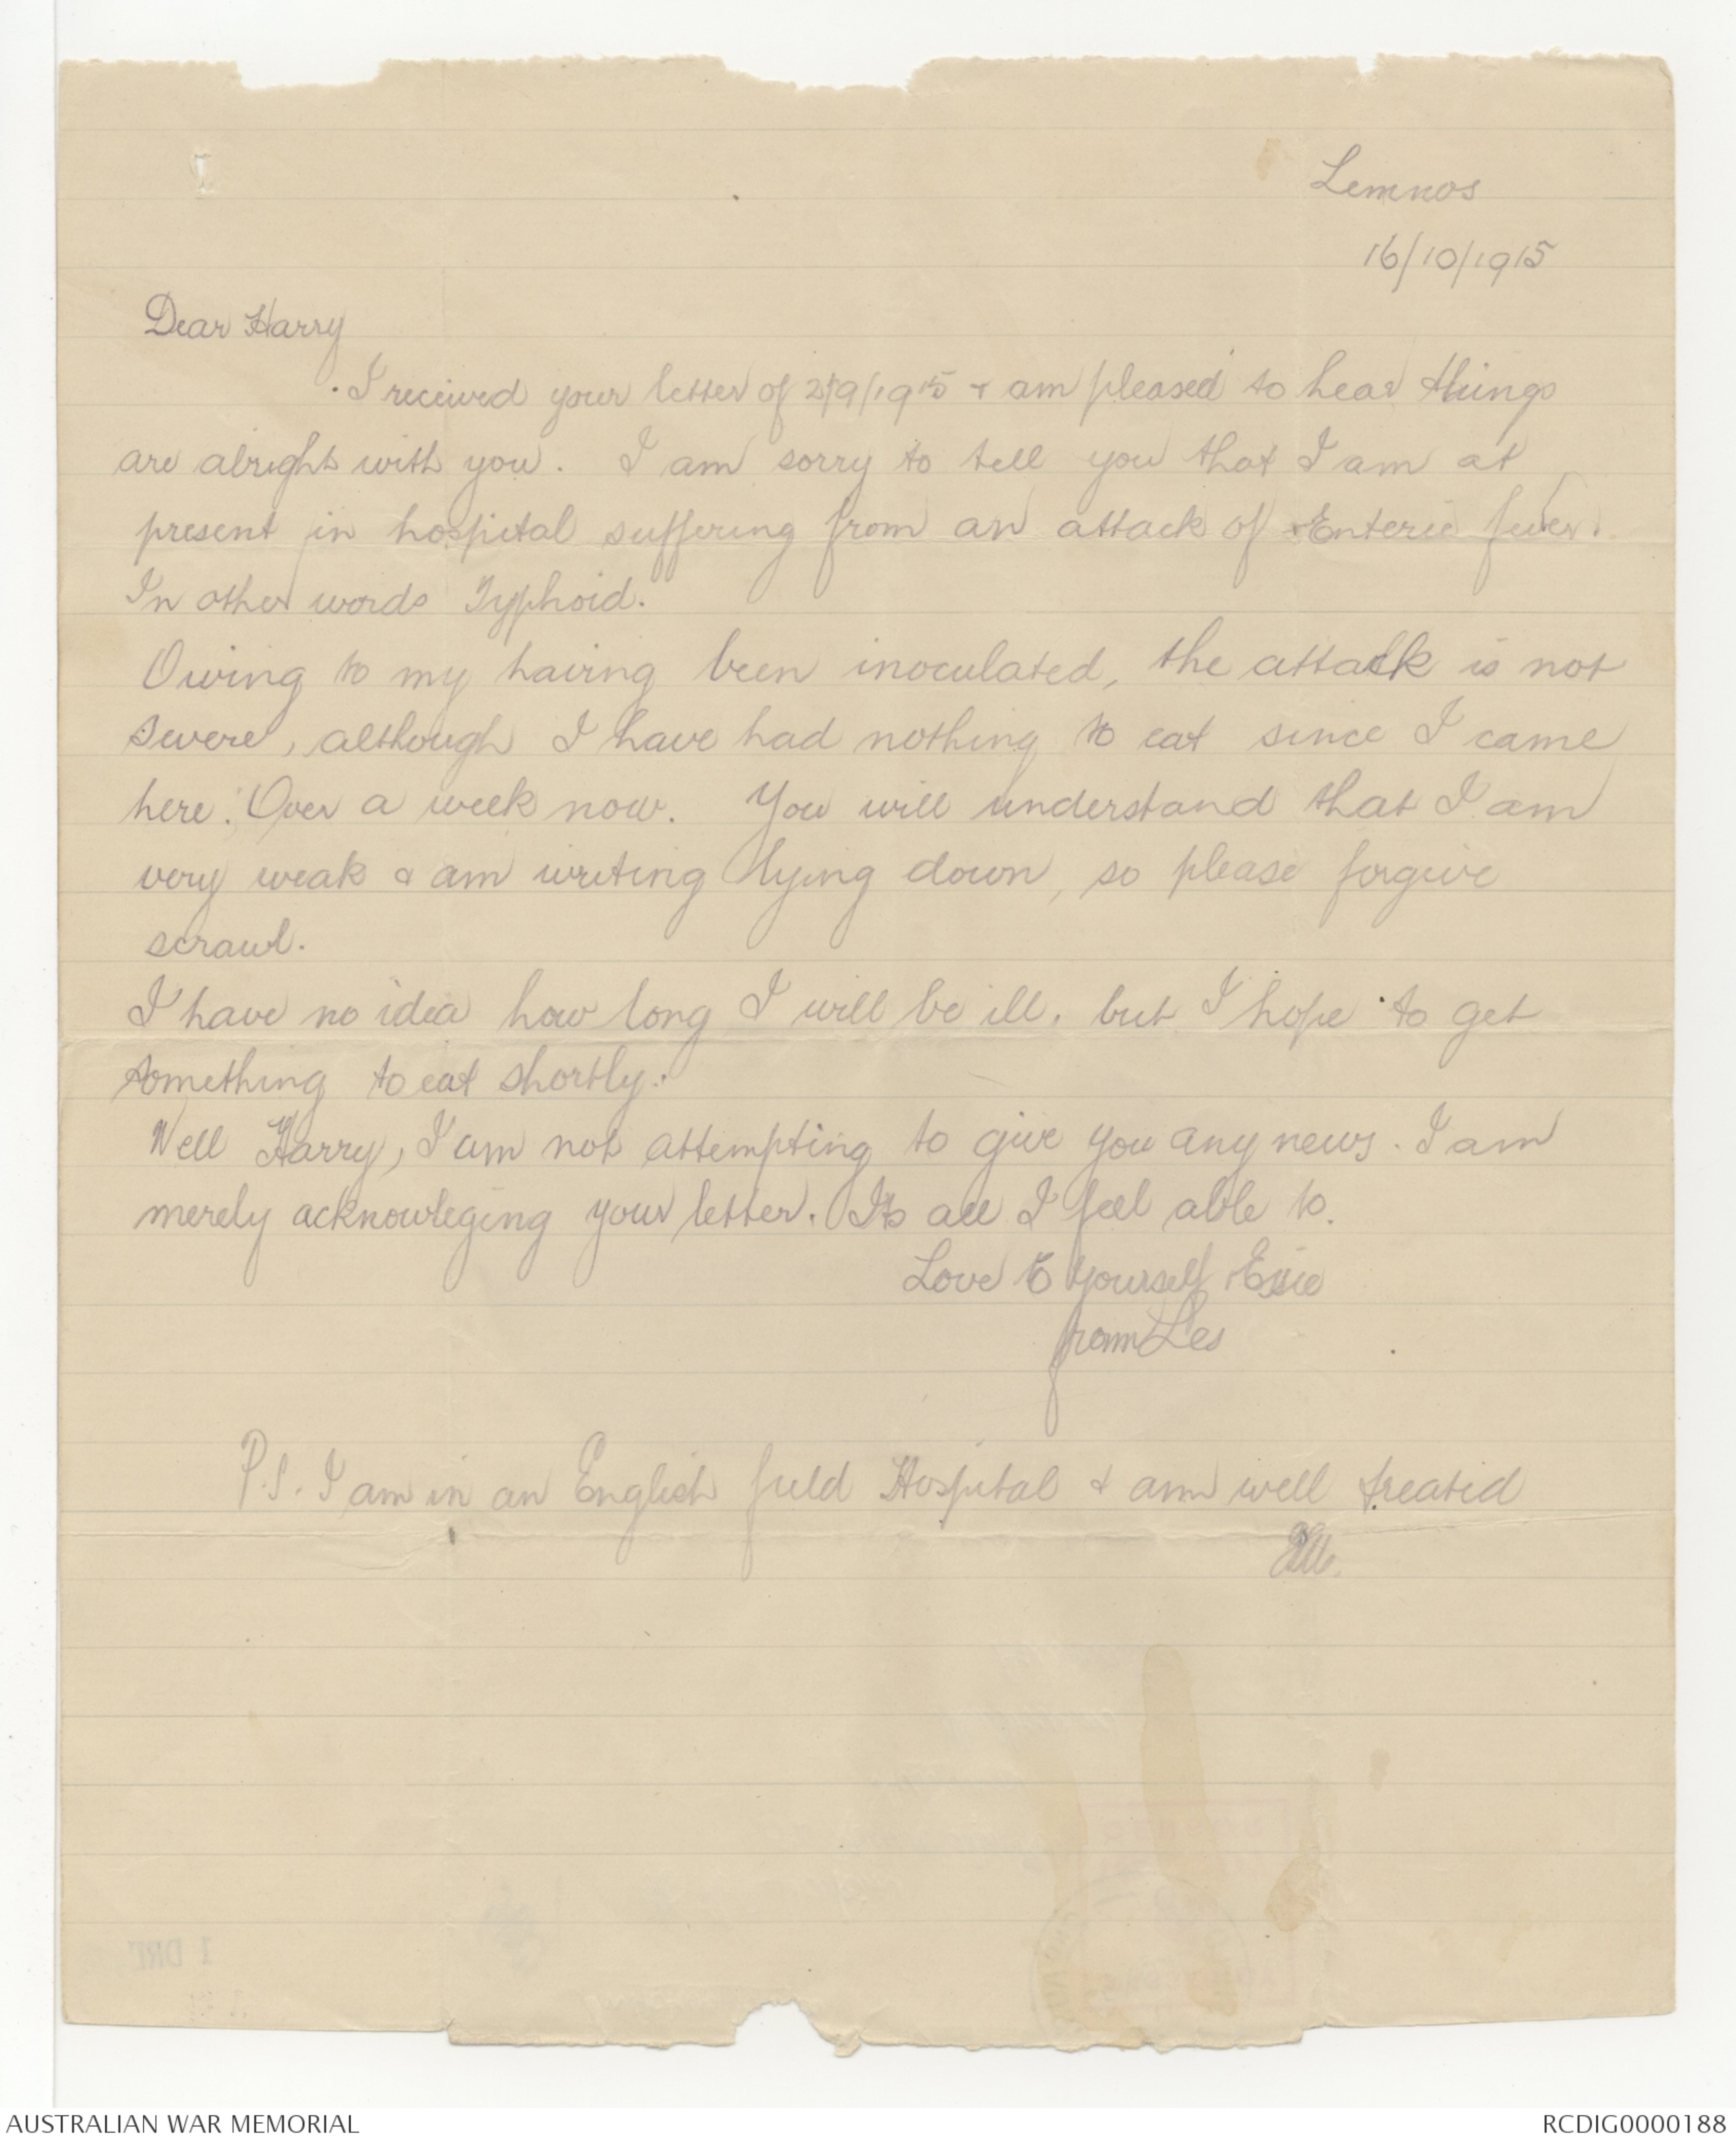 Lemnos
16/10/1915
Dear Harry
I received your letter of /9/1915 & am pleased to hear things
are alright with you. I am sorry to tell you that I am at
present in hospital suffering from an attack of Enteric fever.
In other words Typhoid.
Owing to my having been inoculated, the attack is not
severe, although I have had nothing to eat since I came
here. Over a week now. You will understand that I am
very weak & am writing lying down, so please forgive
scrawl.
I have no idea how long I will be ill, but I hope to get
something to eat shortly.
Well Harry, I am not attempting to give you any news. I am
merely acknowleging your letter. Its all I feel able to.
Love to Yourself &
from Les
P.S. I am in an English field Hospital & am well treated
AUSTRALIAN WAR MEMORIAL
RCDIG0000188